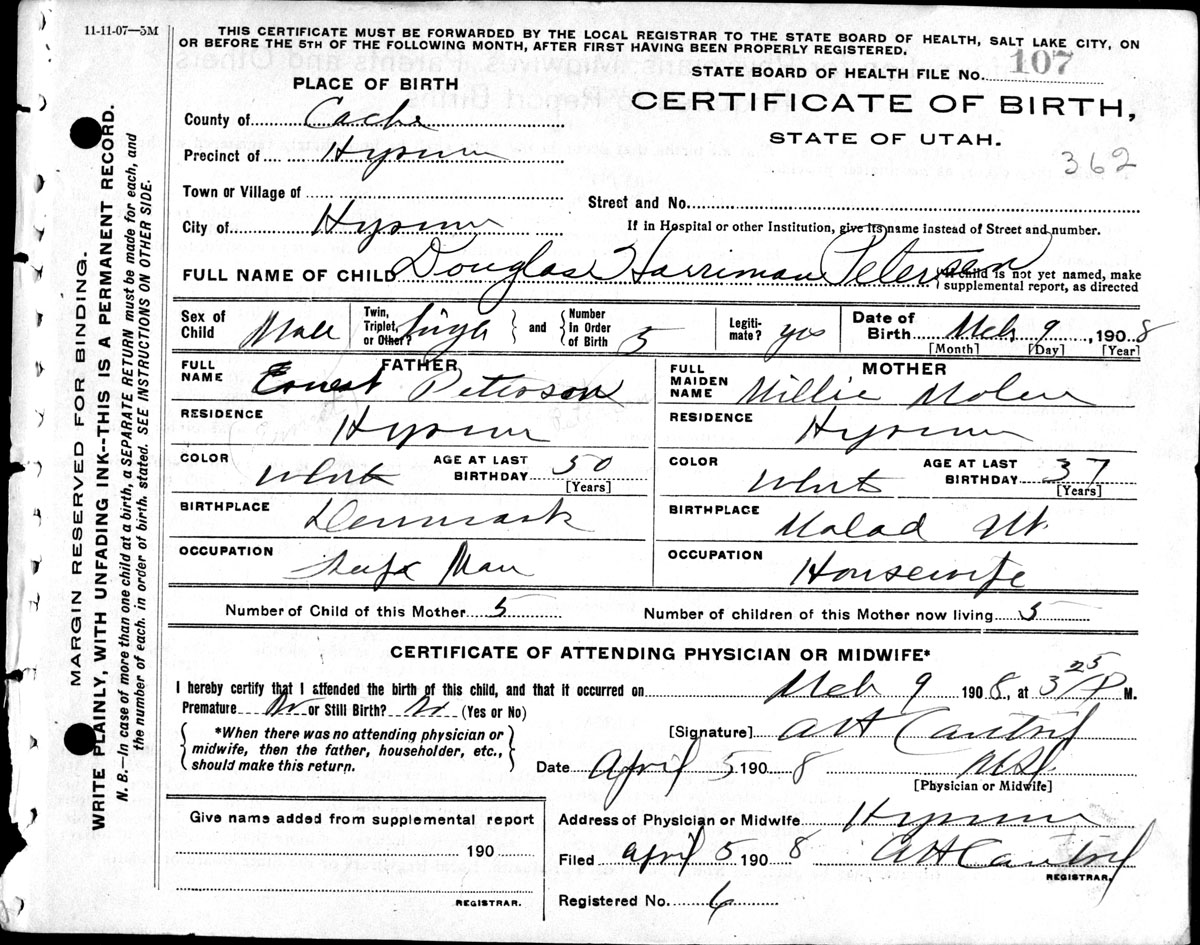 11-11-07—3M
THIS CERTIFICATE MUST BE FORWARDED BY THE LOCAL REGISTRAR TO THE STATE BOARD OF HEALTH, SALT LAKE CITY, ON
OR BEFORE THE 5TH OF THE FOLLOWING MONTH, AFTER FIRST HAVING BEEN PROPERLY REGISTERED.
STATE BOARD OF HEALTH FILE No. 107
PLACE OF BIRTH
CERTIFICATE OF BIRTH,
STATE OF UTAH.
362
County of Cache
Precinct of Hyrum
Town or Village of
Street and No.
City of Hyrum
If in Hospital or other Institution, give its name instead of Street and number.
FULL NAME OF CHILD Douglas Harriman Petersen
If child is not yet named, make
supplemental report, as directed
Sex of Child Male
Twin, Triplet, or Other? Single and Number In Order of Birth 5
Legitimate? yes
Date of Birth Mch 9, 1908
[Month] [Day] [Year]
FATHER
FULL NAME Ernest Peterson
MOTHER
FULL MAIDEN NAME Millie Molen
RESIDENCE Hyrum
RESIDENCE Hyrum
COLOR White AGE AT LAST BIRTHDAY 50
[Years]
COLOR White AGE AT LAST BIRTHDAY 37
[Years]
BIRTHPLACE Denmark
BIRTHPLACE Malad Ut.
OCCUPATION Man
OCCUPATION Housewife
Number of Child of this Mother 5 Number of children of this Mother now living 5
CERTIFICATE OF ATTENDING PHYSICIAN OR MIDWIFE*
I hereby certify that I attended the birth of this child, and that it occurred on Mch 9 1908, at 3 25 P M.
Premature No or Still Birth? No (Yes or No)
*When there was no attending physician or
midwife, then the father, householder, etc.,
should make this return.
[Signature] AH Cantril
Date April 5 1908 MD
[Physician or Midwife]
Give name added from supplemental report
190
REGISTRAR.
Address of Physician or Midwife Hyrum
Filed April 5 1908 AH Cantril
REGISTRAR.
Registered No. 6
MARGIN RESERVED FOR BINDING.
WRITE PLAINLY, WITH UNFADING INK--THIS IS A PERMANENT RECORD.
N. B.—In case of more than one child at a birth, a SEPARATE RETURN must be made for each, and
the number of each, in order of birth, stated. SEE INSTRUCTIONS ON OTHER SIDE.